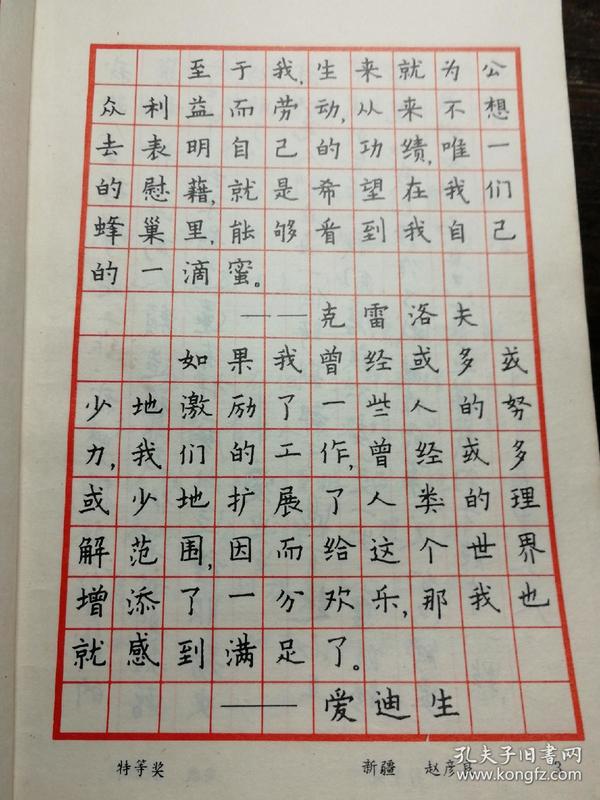 至于我,生来就为公
众利益而劳动,从来不想
去表明自己的功绩,唯一
的慰藉,就是希望在我们
的蜂巢里,能够看到我自己
的一滴蜜。
——克雷洛夫
如果我曾经或多或
少地激励了一些人的努
力,我们的工作,曾经或多
或少地扩展了人类的理
解范围,因而给这个世界
增添了一分欢乐,那我也
就感到满足了。
——爱迪生
特等奖 新疆 赵彦 3
孔夫子旧书网
www.kongfz.com